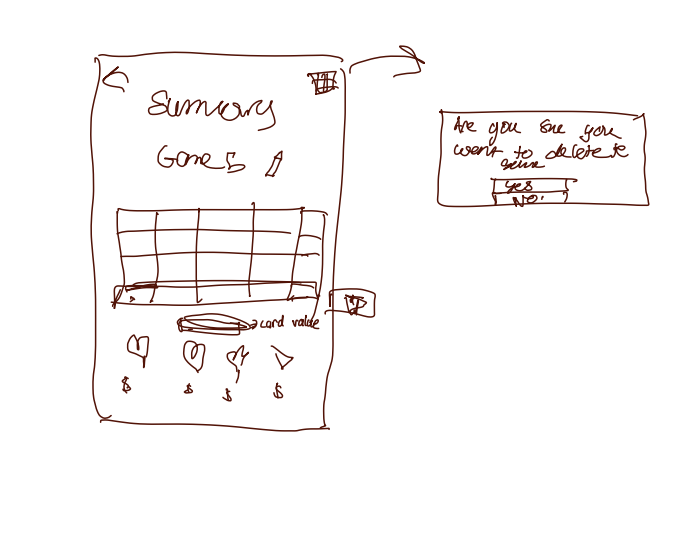 Summary
Game 5
card value
$ $ $ $
Are you sure you
want to delete
game
Yes
No